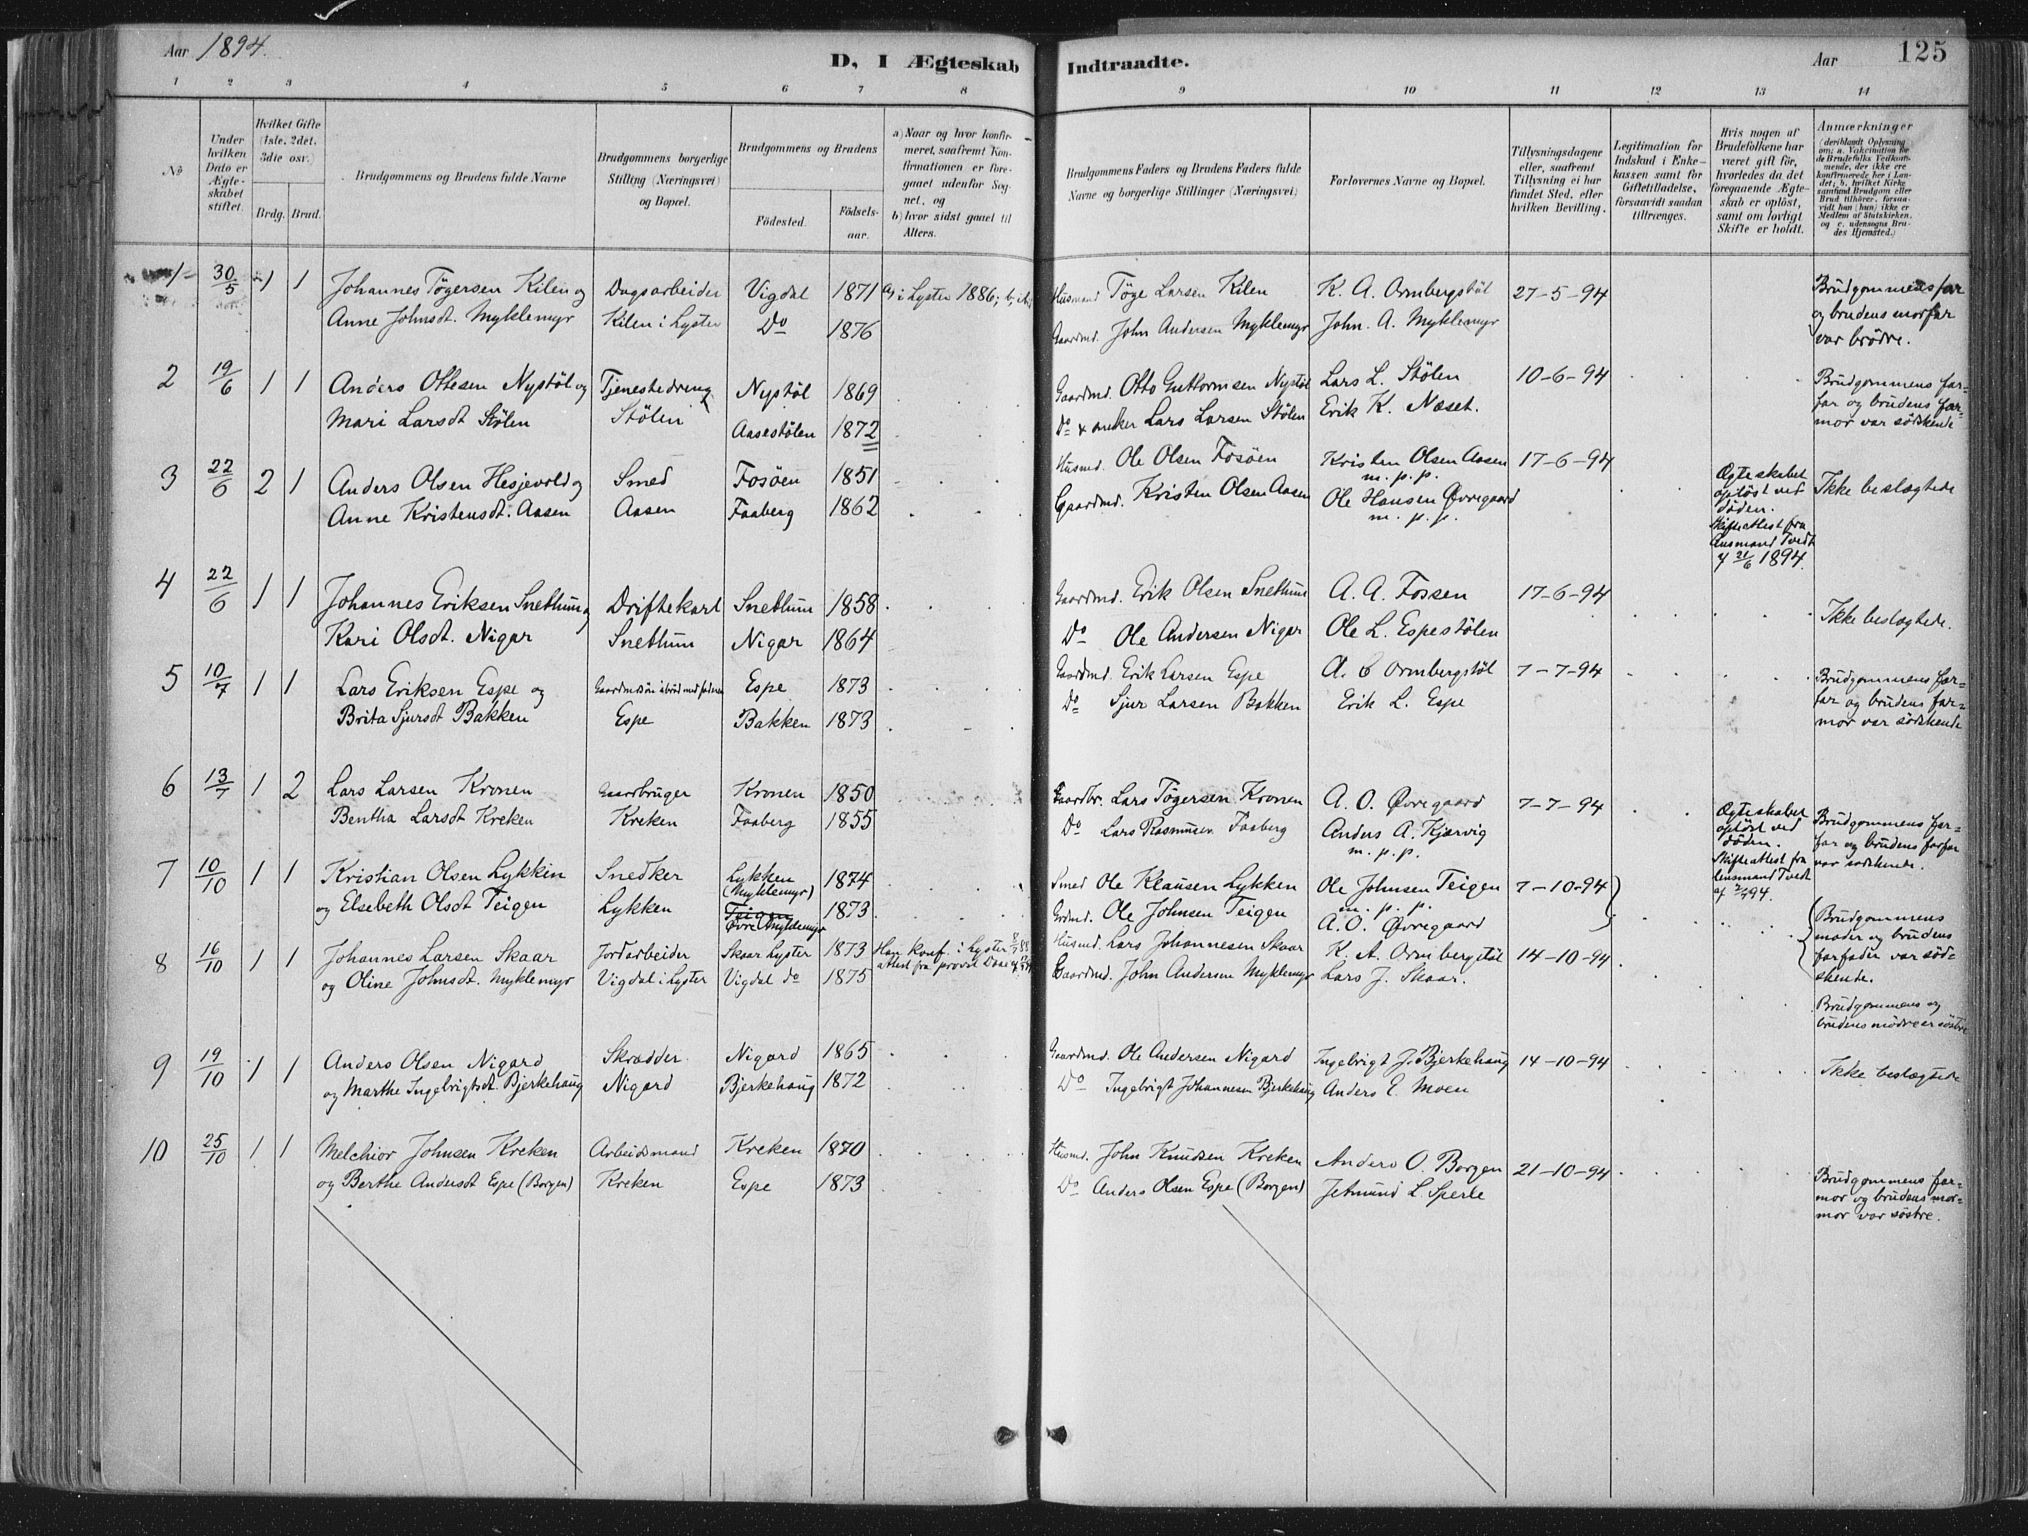 Aar 1894.
D, I Ægteskab Indtraadte.
Aar
125
1 2 3 4 5 6 7 8 9 10 11 12 13 14
No
Under hvilken Dato er Ægteskabet stiftet.
Hvilket Gifte (1ste, 2det, 3die osv.)
Brdg. Brud.
Brudgommens og Brudens fulde Navne
Brudgommens borgerlige Stilling (Næringsvei) og Bopæl.
Brudgommens og Brudens
Fødested.
Fødselsaar.
a) Naar og hvor konfirmeret, saafremt Konfirmationen er foregaaet udenfor Sognet, og
b) hvor sidst gaaet til Alters.
Brudgommens Faders og Brudens Faders fulde Navne og borgerlige Stillinger (Næringsvei)
Forlovernes Navne og Bopæl.
Tillysningsdagene eller, saafremt Tillysning ei har fundet Sted, efter hvilken Bevilling.
Legitimation for Indskud i Enkekassen samt for Giftetilladelse, forsaavidt saadan tiltrænges.
Hvis nogen af Brudefolkene har været gift før, hvorledes da det foregaaende Ægteskab er opløst, samt om lovligt Skifte er holdt.
Anmærkninger
(deriblandt Oplysning om: a. Vakcination for de Brudefolks Vedkommende, der ikke ere konfirmerede her i Landet; b. hvilket Kirkesamfund Brudgom eller Brud tilhører, forsaavidt han (hun) ikke er Medlem af Statskirken, og c. udensogns Brudes Hjemsted.)
1 30/5 1 1 Johannes Tøgersen Kilen og Dagsarbeider Vigdal 1871 a, i Lyster 1886; Husmand Tøge Larsen Kilen K. A. Ormbergstøl 27-5-94 Brudgommens far
Anne Johnsdt. Myklemyr Kilen i Lyster Do 1876 Gaardmd. John Andersen Myklemyr John. A. Myklemyr og brudens morfar
var brødre.
2 19/6 1 1 Anders Ottesen Nystøl og Tjenestedreng Nystøl 1869 Gaardmd. Otto Guttormsen Nystøl Lars L. Stølen 10-6-94 Brudgommens far-
Mari Larsdt Stølen Stølen Aasestølen 1872 Do & anker Lars Larsen Stølen Erik K. Næset. far og brudens far-
mor var sødskende
3 22/6 2 1 Anders Olsen Hesjevold og Smed Fosøen 1851 Husmd. Ole Olsen Fosøen Kristen Olsen Aasen 17-6-94 Ægteskabet Ikke beslægtede
m. p. p. opløst ved
Anne Kristensdt. Aasen Aasen Faaberg 1862 Gaardmd. Kristen Olsen Aasen Ole Hansen Øvregaard døden.
m. p. p. Skifteattest fra
lensmand Tvedt
af 21/6 1894.
4 22/6 1 1 Johannes Eriksen Snethun og Driftekarl Snethun 1858 Gaardmd. Erik Olsen Snethun A. A. Fossen 17-6-94 Ikke beslægtede.
Kari Olsdt. Nigar Snethun Nigar 1864 Do Ole Andersen Nigar Ole L. Espestølen
5 10/7 1 1 Lars Eriksen Espe og Espe 1873 Gaardmd. Erik Larsen Espe A. O Ormbergstøl 7-7-94 Brudgommens far-
Brita Sjursdt Bakken Espe Bakken 1873 Do Sjur Larsen Bakken Erik L. Espe far og brudens far-
mor var sødskende
6 13/7 1 2 Lars Larsen Kronen Gaardbruger Kronen 1850 Gaardbr. Lars Tøgersen Kronen A. O. Øvregaard 7-7-94 Ægteskabet Brudgommens far-
Bentha Larsdt Kreken Kreken Faaberg 1855 Do Lars Rasmusen Faaberg Anders A. Kjærvig opløst ved far og brudens farfar
m. p. p. døden. var sødskende.
Skifteattest fra
lensmand Tvedt
7 10/10 1 1 Kristian Olsen Lykkin Snedker Lykken 1874 Smed Ole Klausen Lykken Ole Johnsen Teigen 7-10-94 Brudgommens
(Myklemyr) m. p. p. moder og brudens
og Elsebeth Olsdt Teigen Lykken Teigen 1873 Grdmd. Ole Johnsen Teigen A. O. Øvregaard farfader var sød-
Øvre Myklemyr skende.
8 16/10 1 1 Johannes Larsen Skaar Jordarbeider Skaar Lyster 1873 Han konf. i Lyster Husmd. Lars Johannesen Skaar K. A. Ormbergstøl 14-10-94 Brudgommens og
og Oline Johnsdt. Myklemyr Vigdal i Lyster Vigdal do 1875 attest fra provst Gaardmd. John Andersen Myklemyr Lars J. Skaar. brudens mødre er søstre
9 19/10 1 1 Anders Olsen Nigard Skrædder Nigard 1865 Gaardmd. Ole Andersen Nigard Ingebrigt J. Bjerkehaug 14-10-94 Ikke beslægtede
og Marthe Ingebrigtsdt. Bjerkehaug Nigard Bjerkehaug 1872 Do Ingebrigt Johannesen Bjerkehaug Anders E. Moen
10 25/10 1 1 Melchior Johnsen Kreken Arbeidsmand Kreken 1870 Husmd. John Knudsen Kreken Anders O. Borgen 21-10-94 Brudgommens far-
og Berthe Andersdt Espe (Borgen) Kreken Espe 1873 Do Anders Olsen Espe (Borgen) Jetmund L. Sperle mor og brudens mor-
mor var søstre.